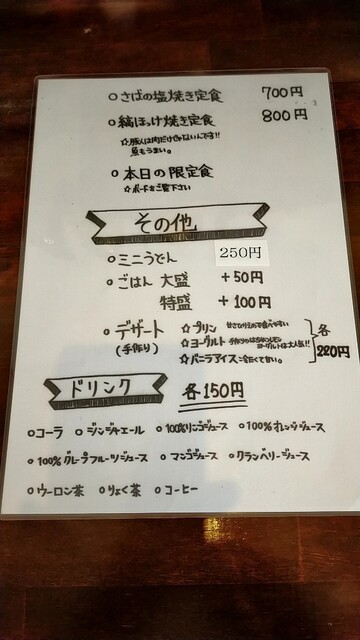 ○さばの塩焼き定食 700円
○縞ほっけ焼き定食 800円
☆豚人は肉だけじゃないんです!!
魚もうまい。
○本日の限定食
☆ボードをご覧下さい
その他
○ミニうどん 250円
○ごはん 大盛 +50円
特盛 +100円
○デザート (手作り)
☆プリン
☆ヨーグルト
ヨーグルトは大人気!!
☆バニラアイス
各220円
ドリンク 各150円
○コーラ ○ジンジャエール ○100%リンゴジュース ○100%オレンジジュース
○100%グレープフルーツジュース ○マンゴジュース ○クランベリージュース
○ウーロン茶 ○りょく茶 ○コーヒー